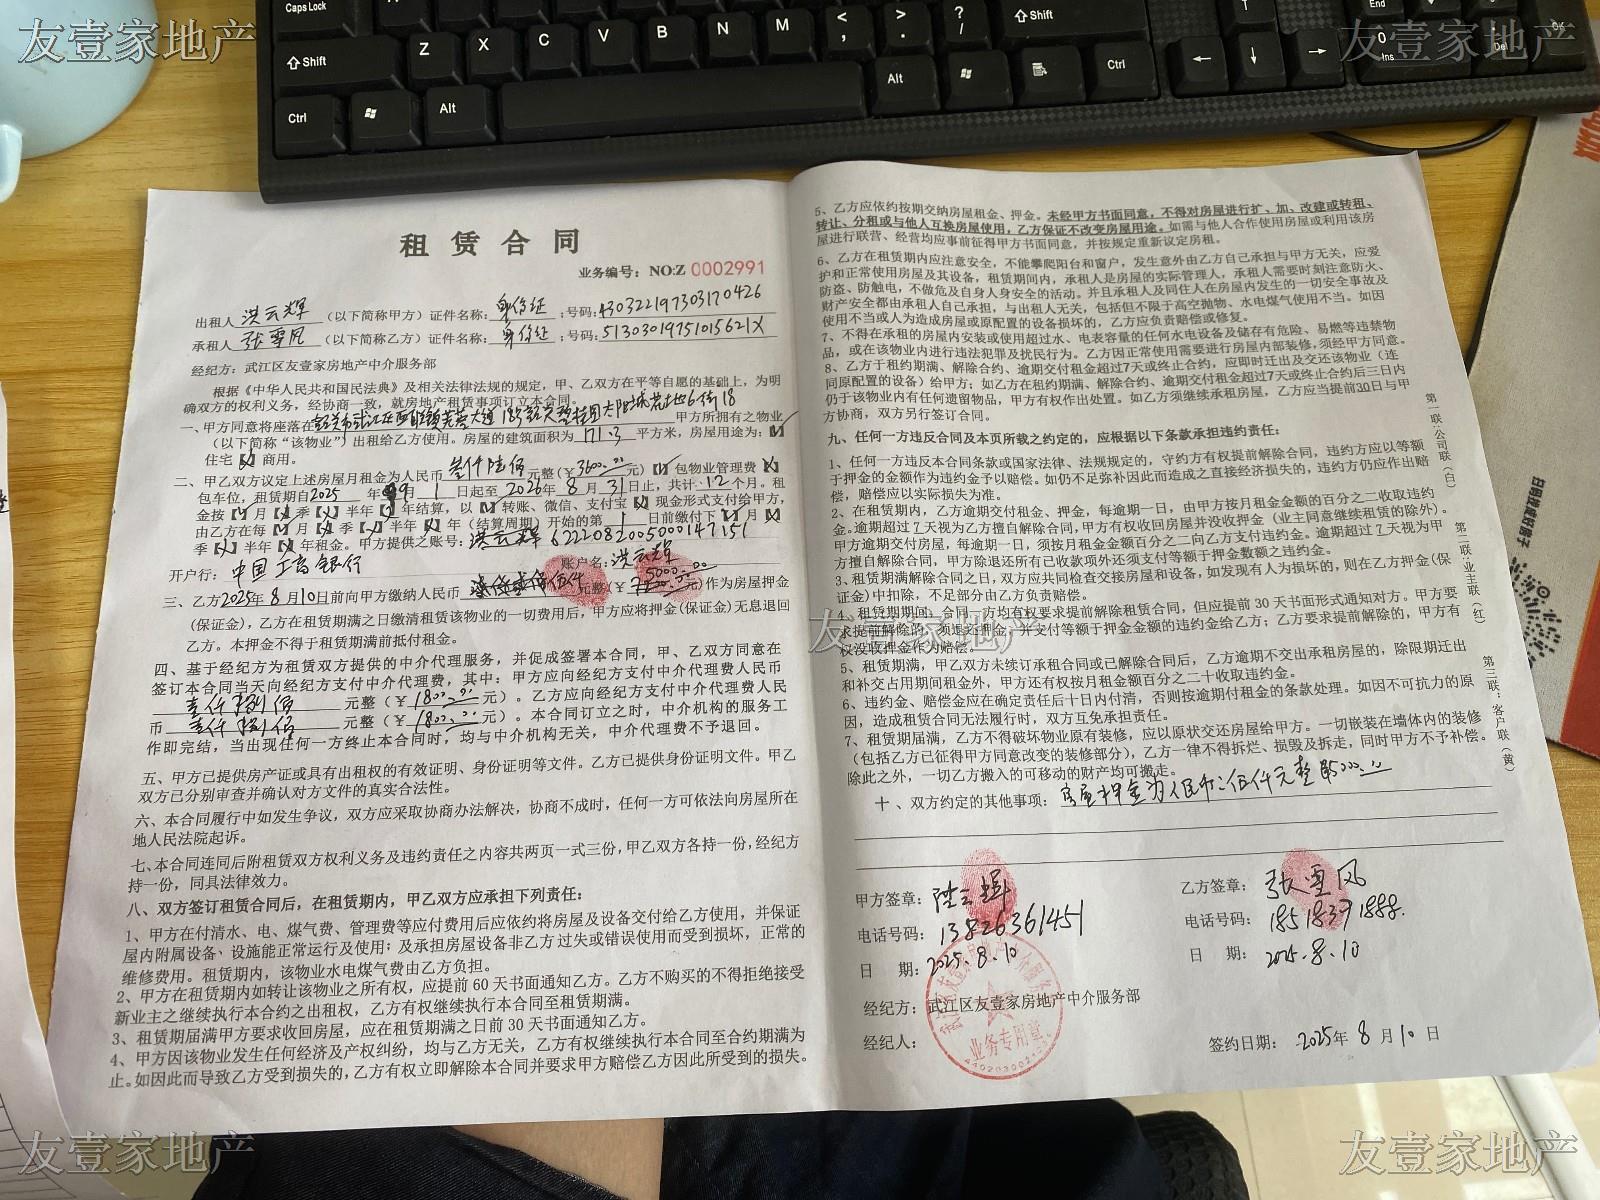 友壹家地产
友壹家地产
Caps Lock
Shift
Z X C V B N M < , > . ? /
Shift
Ctrl
Alt
Alt
Ctrl
End
0 Ins
. Del
租 赁 合 同
业务编号：NO:Z 0002991
出租人 洪云辉 （以下简称甲方）证件名称：身份证 ；号码：430322197303170426
承租人 张雪凤 （以下简称乙方）证件名称：身份证 ；号码：51303019751015621X
经纪方：武江区友壹家房地产中介服务部
根据《中华人民共和国民法典》及相关法律法规的规定，甲、乙双方在平等自愿的基础上，为明
确双方的权利义务，经协商一致，就房地产租赁事项订立本合同。
一、甲方同意将座落在韶关市武江区西联镇芙蓉大道18号韶关碧桂园太阳城花地6街18 甲方所拥有之物业
（以下简称“该物业”）出租给乙方使用。房屋的建筑面积为 171.3 平方米，房屋用途为：【】
住宅【】商用。
二、甲乙双方议定上述房屋月租金为人民币 叁仟陆佰 元整（￥3600.00元）【】包物业管理费【】
包车位，租赁期自2025 年 9 月 1 日起至 2026年 8 月 31日止，共计 12 个月。租
金按【】月【】季【】半年【】年结算，以【】转账、微信、支付宝【】现金形式支付给甲方，
由乙方在每【】月【】季【】半年【】年（结算周期）开始的第 1 日前缴付下【】月【】
季【】半年【】年租金。甲方提供之账号：洪云辉 6222082005000147151
开户行：中国工商银行 账户名：洪云辉
三、乙方2025年8月10日前向甲方缴纳人民币 伍仟 元整（￥5000.00元）作为房屋押金
（保证金），乙方在租赁期满之日缴清租赁该物业的一切费用后，甲方应将押金(保证金)无息退回
乙方。本押金不得于租赁期满前抵付租金。
四、基于经纪方为租赁双方提供的中介代理服务，并促成签署本合同，甲、乙双方同意在
签订本合同当天向经纪方支付中介代理费，其中：甲方应向经纪方支付中介代理费人民币
壹仟捌佰 元整（￥1800.00元）。乙方应向经纪方支付中介代理费人民
币 壹仟捌佰 元整（￥1800.00元）。本合同订立之时，中介机构的服务工
作即完结，当出现任何一方终止本合同时，均与中介机构无关，中介代理费不予退回。
五、甲方已提供房产证或具有出租权的有效证明、身份证明等文件。乙方已提供身份证明文件。甲乙
双方已分别审查并确认对方文件的真实合法性。
六、本合同履行中如发生争议，双方应采取协商办法解决，协商不成时，任何一方可依法向房屋所在
地人民法院起诉。
七、本合同连同后附租赁双方权利义务及违约责任之内容共两页一式三份，甲乙双方各持一份，经纪方
持一份，同具法律效力。
八、双方签订租赁合同后，在租赁期内，甲乙双方应承担下列责任：
1、甲方在付清水、电、煤气费、管理费等应付费用后应依约将房屋及设备交付给乙方使用，并保证
屋内附属设备、设施能正常运行及使用；及承担房屋设备非乙方过失或错误使用而受到损坏，正常的
维修费用。租赁期内，该物业水电煤气费由乙方负担。
2、甲方在租赁期内如转让该物业之所有权，应提前60天书面通知乙方。乙方不购买的不得拒绝接受
新业主之继续执行本合约之出租权，乙方有权继续执行本合同至租赁期满。
3、租赁期届满甲方要求收回房屋，应在租赁期满之日前30天书面通知乙方。
4、甲方因该物业发生任何经济及产权纠纷，均与乙方无关，乙方有权继续执行本合同至合约期满为
止。如因此而导致乙方受到损失的，乙方有权立即解除本合同并要求甲方赔偿乙方因此所受到的损失。
5、乙方应依约按期交纳房屋租金、押金。未经甲方书面同意，不得对房屋进行扩、加、改建或转租、
转让、分租或与他人互换房屋使用，乙方保证不改变房屋用途。如需与他人合作使用房屋或利用该房
屋进行联营、经营均应事前征得甲方书面同意，并按规定重新议定房租。
6、乙方在租赁期内应注意安全，不能攀爬阳台和窗户，发生意外由乙方自己承担与甲方无关，应爱
护和正常使用房屋及其设备，租赁期间内，承租人是房屋的实际管理人，承租人需要时刻注意防火、
防盗、防触电，不做危及自身人身安全的活动。并且承租人及同住人在房屋内发生的一切安全事故及
财产安全都由承租人自己承担，与出租人无关，包括但不限于高空抛物、水电煤气使用不当。如因
使用不当或人为造成房屋或原配置的设备损坏的，乙方应负责赔偿或修复。
7、不得在承租的房屋内安装或使用超过水、电表容量的任何水电设备及储存有危险、易燃等违禁物
品，或在该物业内进行违法犯罪及扰民行为。乙方因正常使用需要进行房屋内部装修，须经甲方同意。
8、乙方于租约期满、解除合约、逾期交付租金超过7天或终止合约，应即时迁出及交还该物业（连
同原配置的设备）给甲方；如乙方在租约期满、解除合约、逾期交付租金超过7天或终止合约后三日内
仍于该物业内有任何遗留物品，甲方有权作出处置。如乙方须继续承租房屋，乙方应当提前30日与甲
方协商，双方另行签订合同。
九、任何一方违反合同及本页所载之约定的，应根据以下条款承担违约责任：
1、任何一方违反本合同条款或国家法律、法规规定的，守约方有权提前解除合同，违约方应以等额
于押金的金额作为违约金予以赔偿。如仍不足弥补因此而造成之直接经济损失的，违约方仍应作出赔
偿，赔偿应以实际损失为准。
2、在租赁期内，乙方逾期交付租金、押金，每逾期一日，由甲方按月租金金额的百分之二收取违约
金。逾期超过7天视为乙方擅自解除合同，甲方有权收回房屋并没收押金（业主同意继续租赁的除外）。
甲方逾期交付房屋，每逾期一日，须按月租金金额百分之二向乙方支付违约金。逾期超过7天视为甲
方擅自解除合同，甲方除退还所有已收款项外还须支付等额于押金数额之违约金。
3、租赁期满解除合同之日，双方应共同检查交接房屋和设备，如发现有人为损坏的，则在乙方押金（保
证金）中扣除，不足部分由乙方负责赔偿。
4、租赁期期间，合同一方均有权要求提前解除租赁合同，但应提前30天书面形式通知对方。甲方要
求提前解除的，须退还押金，并支付等额于押金金额的违约金给乙方；乙方要求提前解除的，甲方有
权没收押金作为赔偿。
5、租赁期满，甲乙双方未续订承租合同或已解除合同后，乙方逾期不交出承租房屋的，除限期迁出
和补交占用期间租金外，甲方还有权按月租金百分之二十收取违约金。
6、违约金、赔偿金应在确定责任后十日内付清，否则按逾期付租金的条款处理。如因不可抗力的原
因，造成租赁合同无法履行时，双方互免承担责任。
7、租赁期届满，乙方不得破坏物业原有装修，应以原状交还房屋给甲方。一切嵌装在墙体内的装修
（包括乙方已征得甲方同意改变的装修部分），乙方一律不得拆烂、损毁及拆走，同时甲方不予补偿。
除此之外，一切乙方搬入的可移动的财产均可搬走。
十、双方约定的其他事项：房屋押金为人民币：伍仟元整 ￥5000.00
甲方签章：洪云辉
电话号码：13826361451
日 期：2025.8.10
乙方签章：张雪凤
电话号码：18518391888.
日 期：2025.8.10
经纪方：武江区友壹家房地产中介服务部
经纪人：
签约日期：2025年 8 月 10 日
业务专用章
第一联：公司联（白）
第二联：业主联（红）
第三联：客户联（黄）
友壹家地产
友壹家地产
友壹家地产